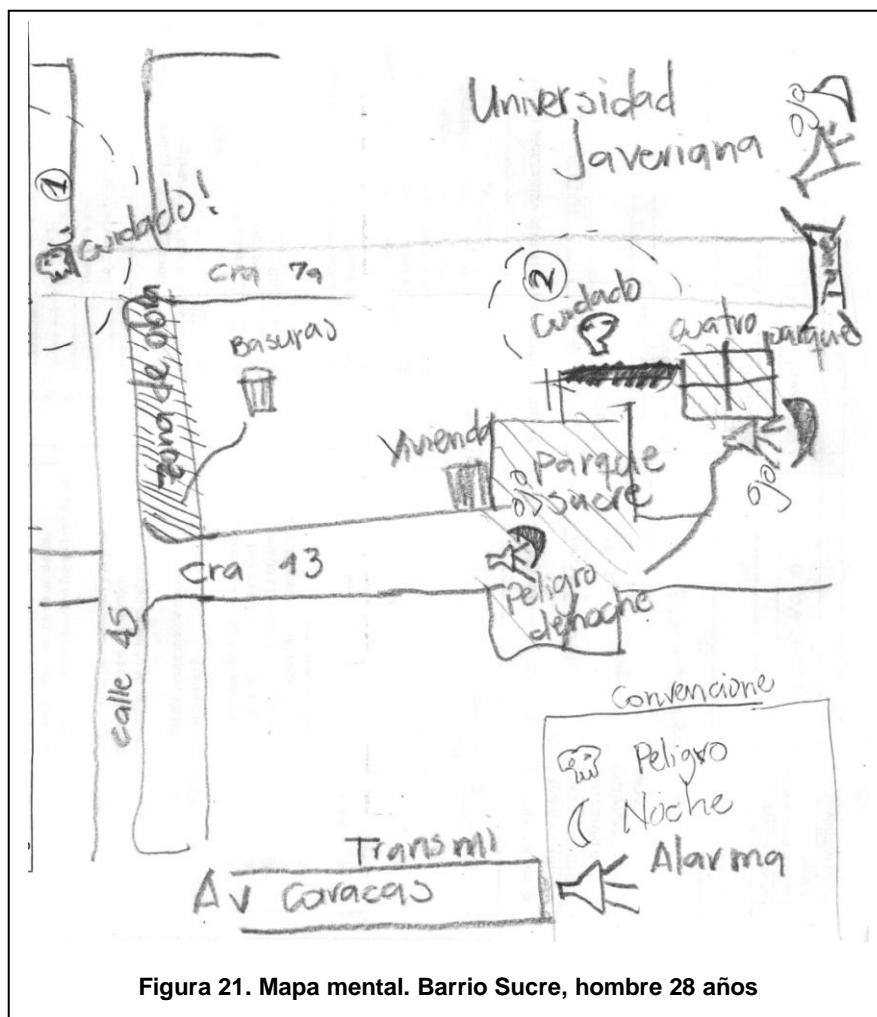 Universidad
Javeriana
ojo
1
cuidado!
cra 7a
2
cuidado
Tunel
cuatro
parques
zona de obra
Basuras
Vivienda
ojo
parque
sucre
ojo
cra 43
Peligro
denoche
calle 45
Convencione
Peligro
Noche
Alarma
Transmi
Av Caracas
Figura 21. Mapa mental. Barrio Sucre, hombre 28 años